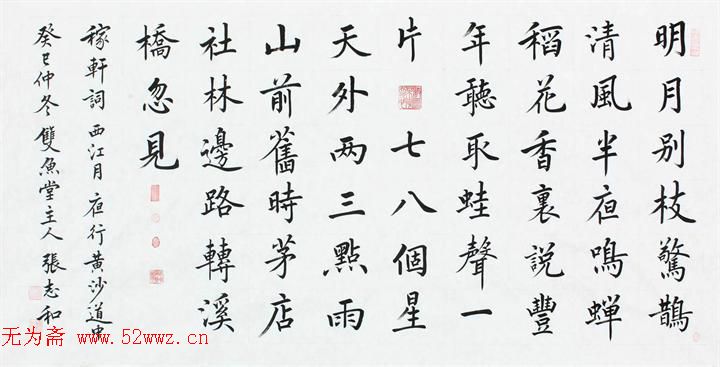 明月别枝驚鵲
清風半夜鳴蝉
稻花香裏說豐
年聽取蛙聲一
片 七八個星
天外两三點雨
山前舊時茅店
社林邊路轉溪
橋忽見
稼軒詞 西江月 夜行黄沙道中
癸巳仲冬雙魚堂主人張志和
无为斋 www.52wwz.cn